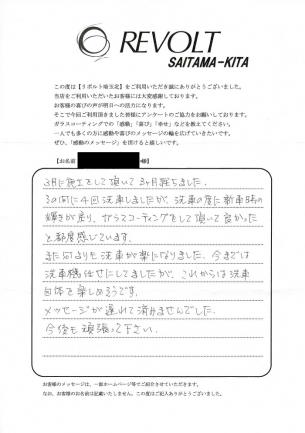 REVOLT
SAITAMA-KITA
この度は【リボルト埼玉北】をご利用いただき誠にありがとうございました。
当店をご利用いただいたお客様には大変感謝しております。
お客様の喜びの声が明日への活力になります。
そこで今回ご利用頂きました皆様にアンケートのご協力をお願いしております。
ガラスコーティングでの「感動」「喜び」「幸せ」などを教えてください。
一人でも多くの方に感動や喜びのメッセージの輪を広げていきたいです。
ぜひ、「感動のメッセージ」を頂けると嬉しいです。
【お名前 様】
3月に施工をして頂いて3ヶ月経ちました。
その間に4回洗車しましたが、洗車の度に新車時の
輝きが戻り、ガラスコーティングをして頂いて良かった
と都度感じています。
また何よりも洗車が楽になりました。今までは
洗車機任せにしてましたが、これからは洗車
自体を楽しめそうです。
メッセージが遅れて済みませんでした。
今後も頑張って下さい。
お客様のメッセージは、一部ホームページ等でご紹介させていただきます。
なお、お客様のお名前は記載いたしません。この度はご記入ありがとうございました。